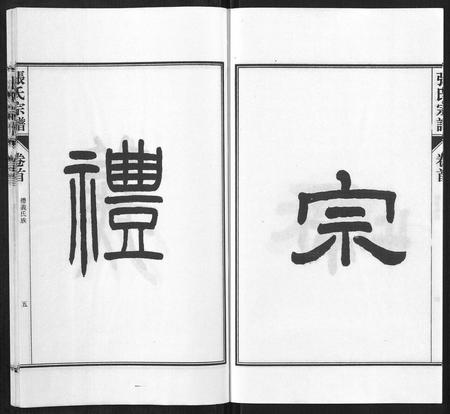 宗
張氏宗譜
卷首
禮
張氏宗譜
卷首
禮義氏族
五